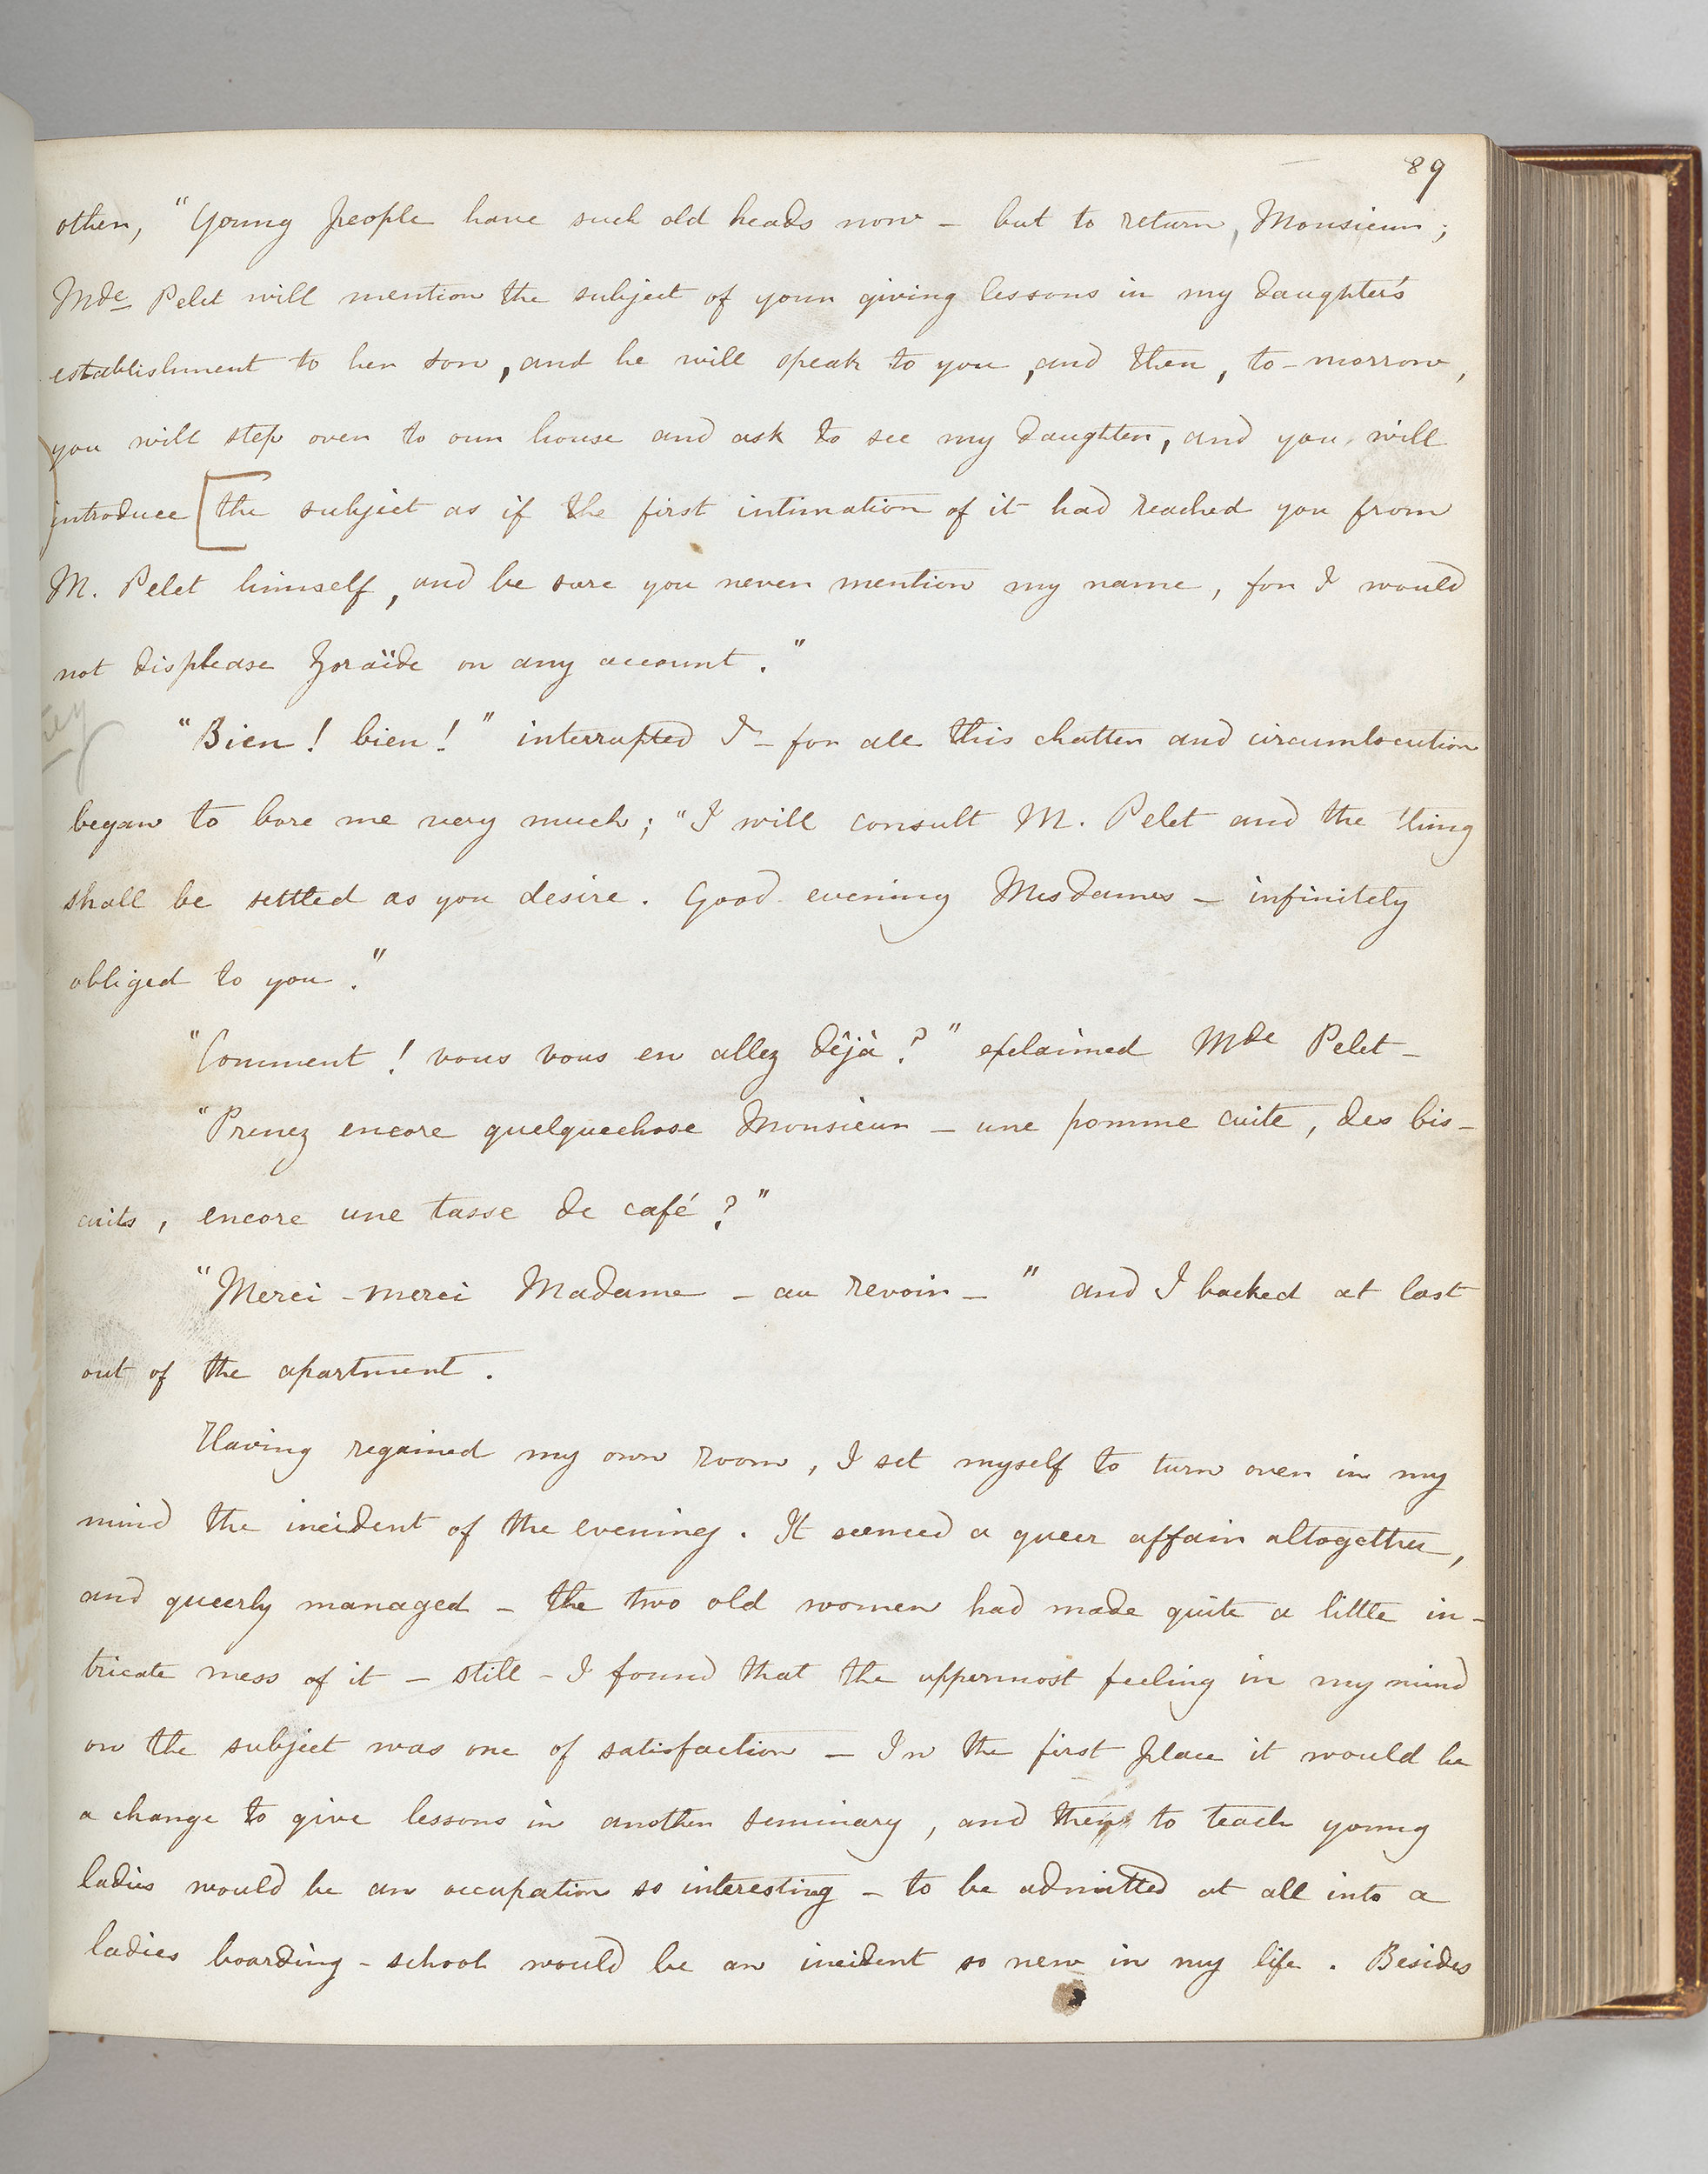 89
other, "Young people have such old heads now – but to return, Monsieur;
Mde Pelet will mention the subject of your giving lessons in my daughter's
establishment to her son, and he will speak to you, and then, to-morrow,
you will step over to our house and ask to see my daughter, and you will
introduce [the subject as if the first intimation of it had reached you from
M. Pelet himself, and be sure you never mention my name, for I would
not displease Zoraïde on any account."
"Bien! bien!" interrupted I – for all this chatter and circumlocution
began to bore me very much; "I will consult M. Pelet and the thing
shall be settled as you desire. Good evening Mesdames – infinitely
obliged to you."
"Comment! vous vous en allez dêjà?" exclaimed Mde Pelet –
"Prenez encore quelquechose Monsieur – une pomme cuite, des bis-
cuits, encore une tasse de café?"
"Merci – merci Madame – au revoir – " and I backed at last
out of the apartment.
Having regained my own room, I set myself to turn over in my
mind the incident of the evening. It seemed a queer affair altogether,
and queerly managed – the two old women had made quite a little in-
tricate mess of it – still – I found that the uppermost feeling in my mind
on the subject was one of satisfaction – In the first place it would be
a change to give lessons in another seminary, and then to teach young
ladies would be an occupation so interesting – to be admitted at all into a
ladies boarding-school would be an incident so new in my life. Besides